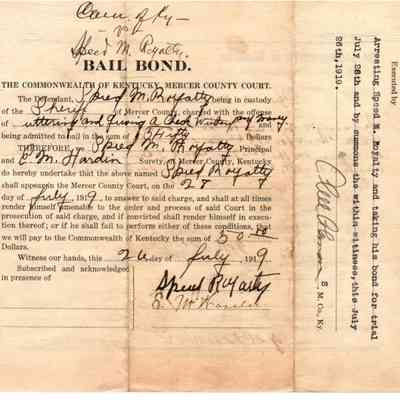 Com. of Ky —
vs
Speed M. Royalty.
BAIL BOND.
THE COMMONWEALTH OF KENTUCKY, MERCER COUNTY COURT.
The Defendant, Speed M. Royalty being in custody
of the Sheriff of Mercer County, charged with the offense
of uttering and giving a check without any money and
being admitted to bail in the sum of $ Fifty Dollars
THEREFORE, we Speed M. Royalty Principal
and E. M. Hardin Surety, of Mercer County, Kentucky
do hereby undertake that the above named Speed Royalty
shall appear in the Mercer County Court, on the 28
day of July 1919, to answer to said charge, and shall at all times
render himself amenable to the order and process of said Court in the
prosecution of said charge, and if convicted shall render himself in execu-
tion thereof; or if he shall fail to perform either of these conditions, that
we will pay to the Commonwealth of Kentucky the sum of 50
Dollars.
Witness our hands, this 26 day of July 1919.
Subscribed and acknowledged
in presence of
Speed Royalty
E. M.
Executed by
Arresting Speed M. Royalty and taking his bond for trial
July 28th and by summons the within witness, this July
26th, 1919.
S. M. Co, Ky.